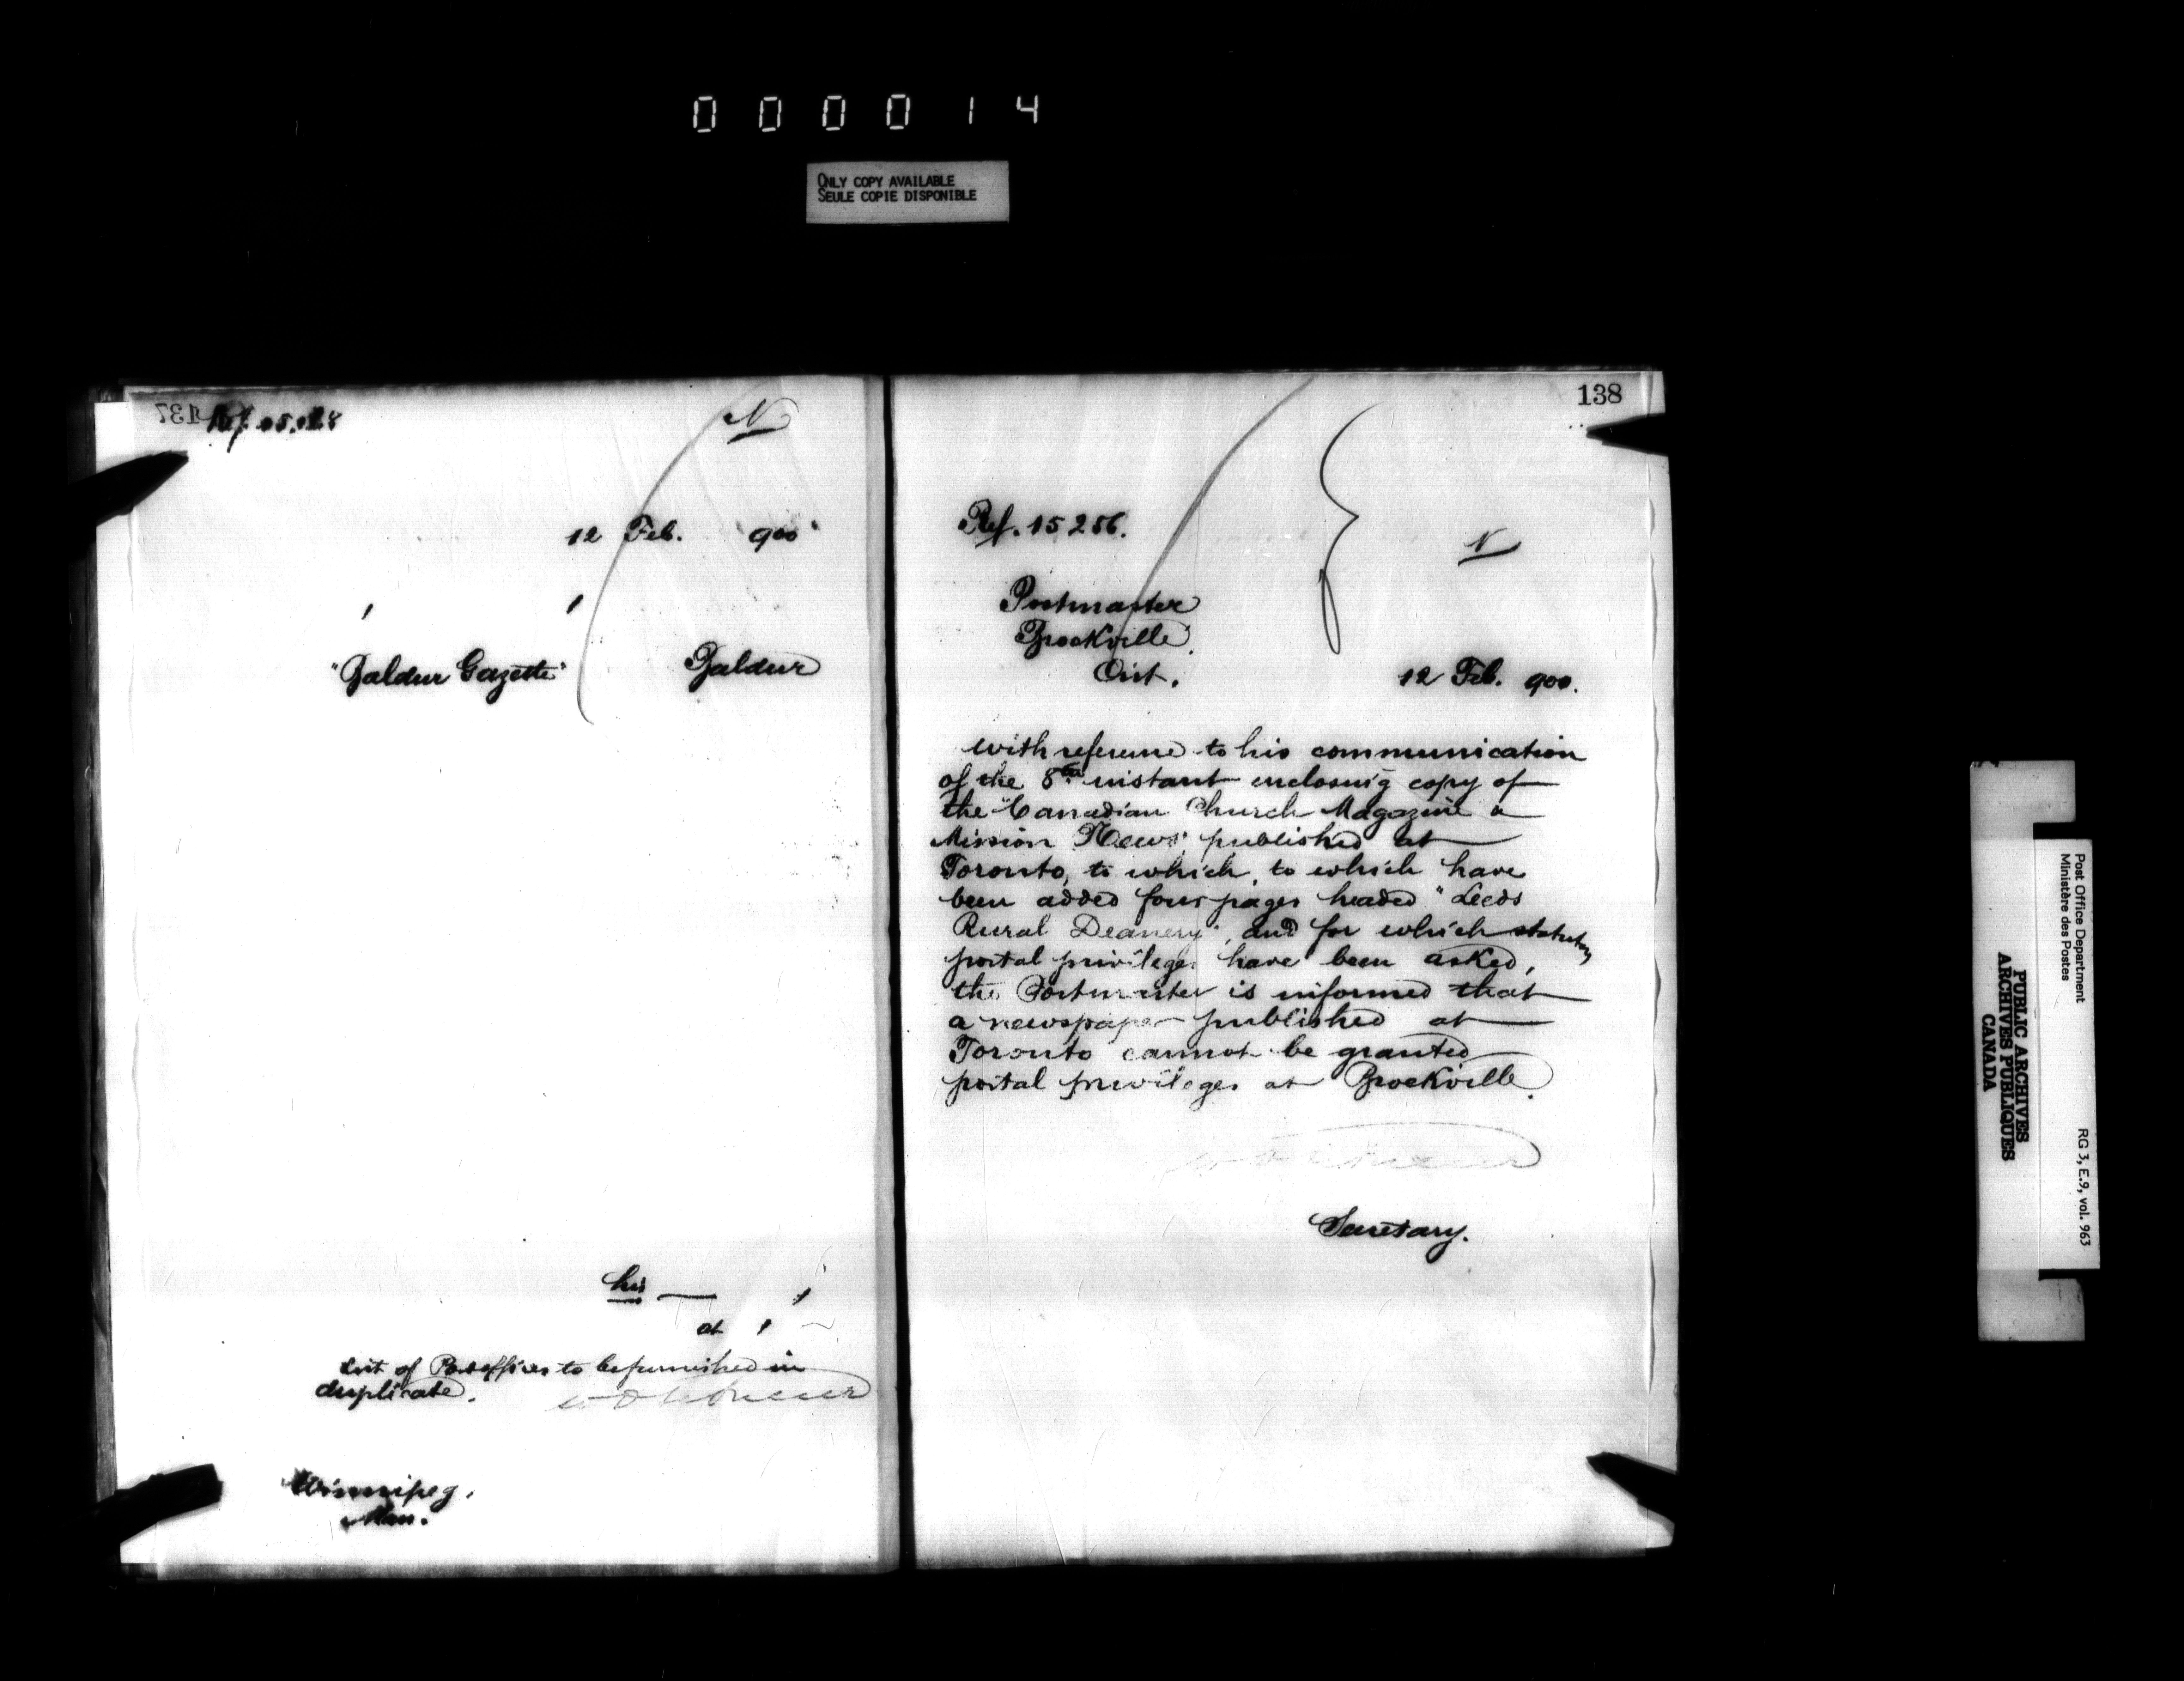 0 0 0 0 1 4
ONLY COPY AVAILABLE
SEULE COPIE DISPONIBLE
137
Ref.
N
12 Feb. 900
"Baldur Gazette" Baldur
his
at
List of Post offices to be furnished in
duplicate.
Winnipeg.
Man.
138
Ref. 15256.
N
Postmaster
Brockville.
Ont.
12 Feb. 900.
with reference to his communication
of the 8th instant enclosing copy of
the "Canadian Church Magazine &
Mission News" published at
Toronto, to which, to which have
been added four pages headed "Leeds
Rural Deanery", and for which statutory
postal privileges have been asked,
the Postmaster is informed that
a newspaper published at
Toronto cannot be granted
postal privileges at Brockville.
Secretary.
Post Office Department
Ministère des Postes
RG 3, E.9, vol. 963
PUBLIC ARCHIVES
ARCHIVES PUBLIQUES
CANADA